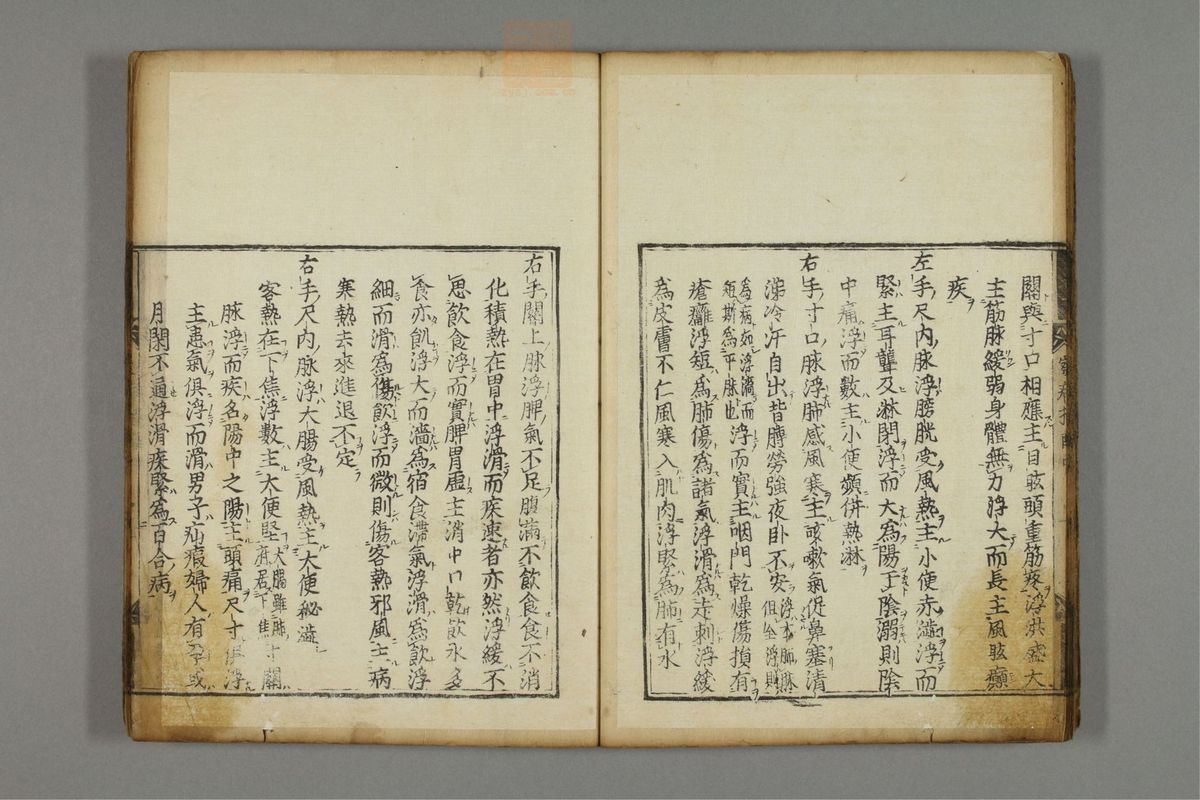 關與寸口相應主目眩頭重筋疼浮洪盛大
主筋脉緩弱身體無力浮大而長主風眩癲
疾
左手尺内脉浮膀胱受風熱主小便赤澁浮而
緊主耳聾及淋閉浮而大為陽干陰溺則陰
中痛浮而數主小便頻併熱淋
右手寸口脉浮肺感風寒主咳嗽氣促鼻塞清
涕冷汗自出背膊勞強夜卧不安浮本肺脉
但全浮則
為病如浮濇而
短斯為平脉也浮而實主咽門乾燥傷損有
瘡癰浮短為肺傷為諸氣浮滑為走刺浮緩
為皮膚不仁風寒入肌肉浮緊為肺有水
右手關上脉浮脾氣不足腹滿不飲食食不消
化積熱在胃中浮滑而疾速者亦然浮緩不
思飲食浮而實脾胃虚主消中口乾飲水多
食亦飢浮大而濇為宿食滯氣浮滑為飲浮
細而滑為傷飲浮而微則傷客熱邪風主病
寒熱去來進退不定
右手尺内脉浮大腸受風熱主大便秘澁
客熱在下焦浮數主大便堅大腸雖
居下焦寸關
脉浮而疾名陽中之陽主頭痛尺寸俱浮
主患氣俱浮而滑男子疝瘕婦人有孕或
月閉不通浮滑疾緊為百合病